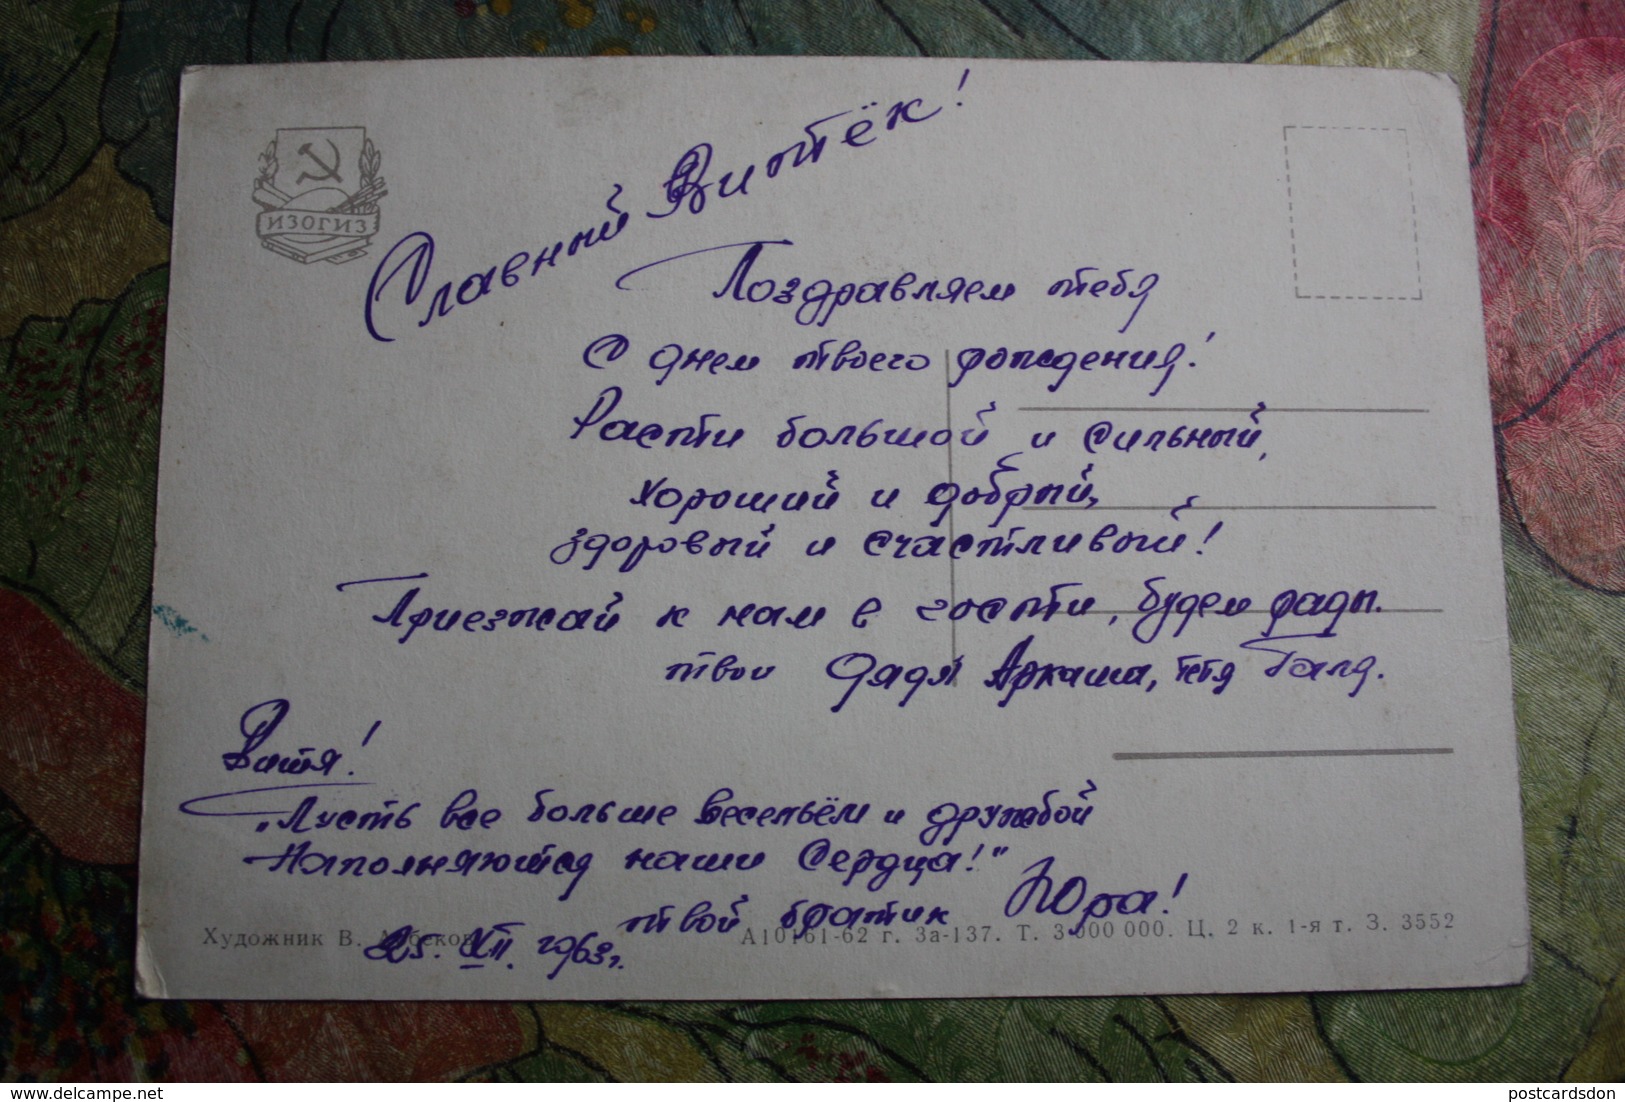 ИЗОГИЗ
Славный Витёк!
Поздравляем тебя
С днем твоего рождения!
Расти большой и сильный,
хороший и добрый,
здоровый и счастливый!
Приезжай к нам в гости, будем рады.
твои дядя Аркаша, тётя Галя.
Витя!
"Пусть все больше весельем и дружбой
Наполняются наши Сердца!"
твой братик Юра!
25. XII. 1963г.
Художник В. Арбеков
А10161-62 г. За-137. Т. 3 000 000. Ц. 2 к. 1-я т. З. 3552
postcardsdon
http://www.delcampe.net